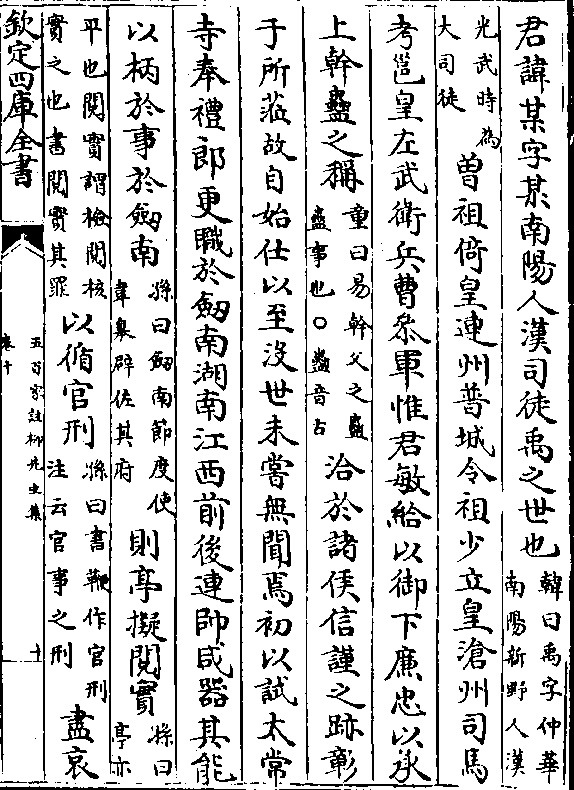 君諱某字某南陽人漢司徒禹之世也
韓曰禹字仲華
南陽新野人漢
光武時為
大司徒
曽祖倚皇連州普城令祖少立皇滄州司馬
考邕皇左武衛兵曹叅軍惟君敏給以御下廉忠以承
上幹蠱之稱
童曰易幹父之蠱
蠱事也○蠱音古
洽於諸侯信謹之跡彰
于所莅故自始仕以至没世未嘗無聞焉初以試太常
寺奉禮郎更職於劔南湖南江西前後連帥咸器其能
以柄於事於劔南
孫曰劔南節度使
韋臯辟佐其府
則亭擬閱實
孫曰
亭亦
平也閱實謂檢閱核
實之也書閱實其罪
以循官刑
孫曰書鞭作官刑
注云官事之刑
盡哀
欽定四庫全書
五百家註柳先生集
卷十
十